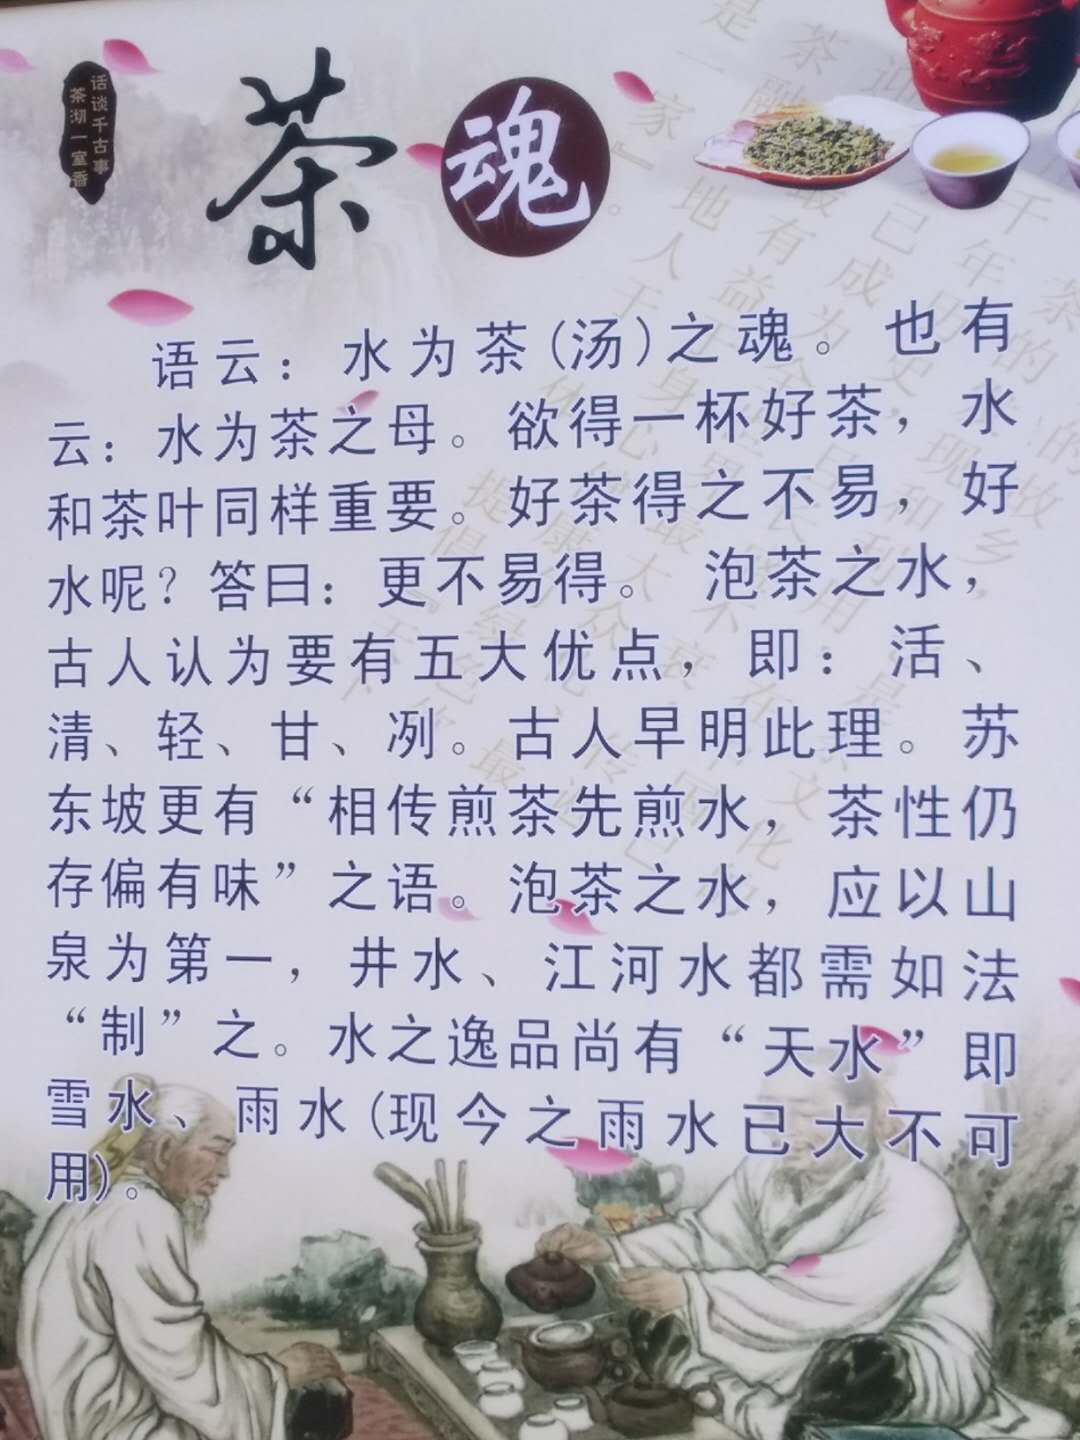 话谈千古事
茶沏一室香
茶魂
语云：水为茶(汤)之魂。也有
云：水为茶之母。欲得一杯好茶，水
和茶叶同样重要。好茶得之不易，好
水呢？答曰：更不易得。泡茶之水，
古人认为要有五大优点，即：活、
清、轻、甘、冽。古人早明此理。苏
东坡更有“相传煎茶先煎水，茶性仍
存偏有味”之语。泡茶之水，应以山
泉为第一，井水、江河水都需如法
“制”之。水之逸品尚有“天水”即
雪水、雨水(现今之雨水已大不可
用)。